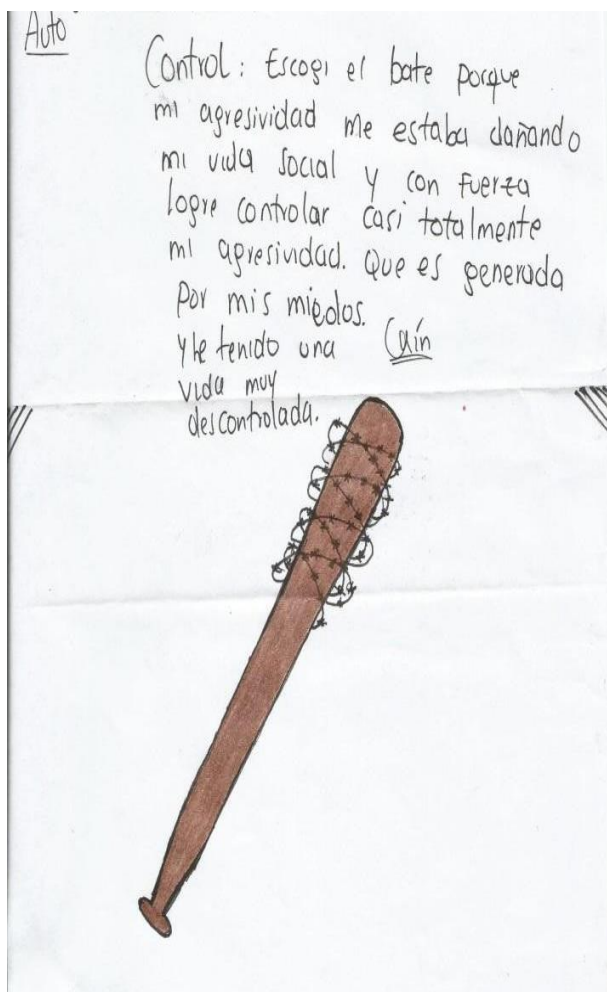 Auto
Control: Escogi el bate porque
mi agresividad me estaba dañando
mi vida social y con fuerza
logre controlar casi totalmente
mi agresividad. Que es generada
por mis miedos.
y he tenido una
vida muy
descontrolada.
Caín